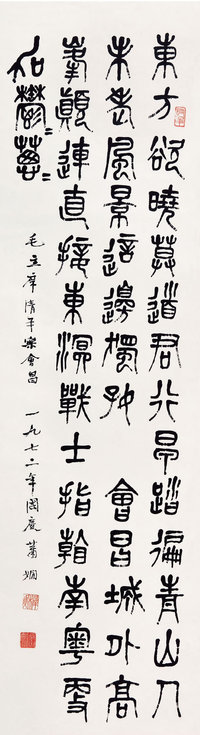 東方欲曉莫道君行早踏徧青山人
未老風景這邊獨好 會昌城外高
峯顛連直接東溟戰士指看南粵更
加鬱〻蔥〻
毛主席清平樂會昌 一九七二年國慶 蕭嫻